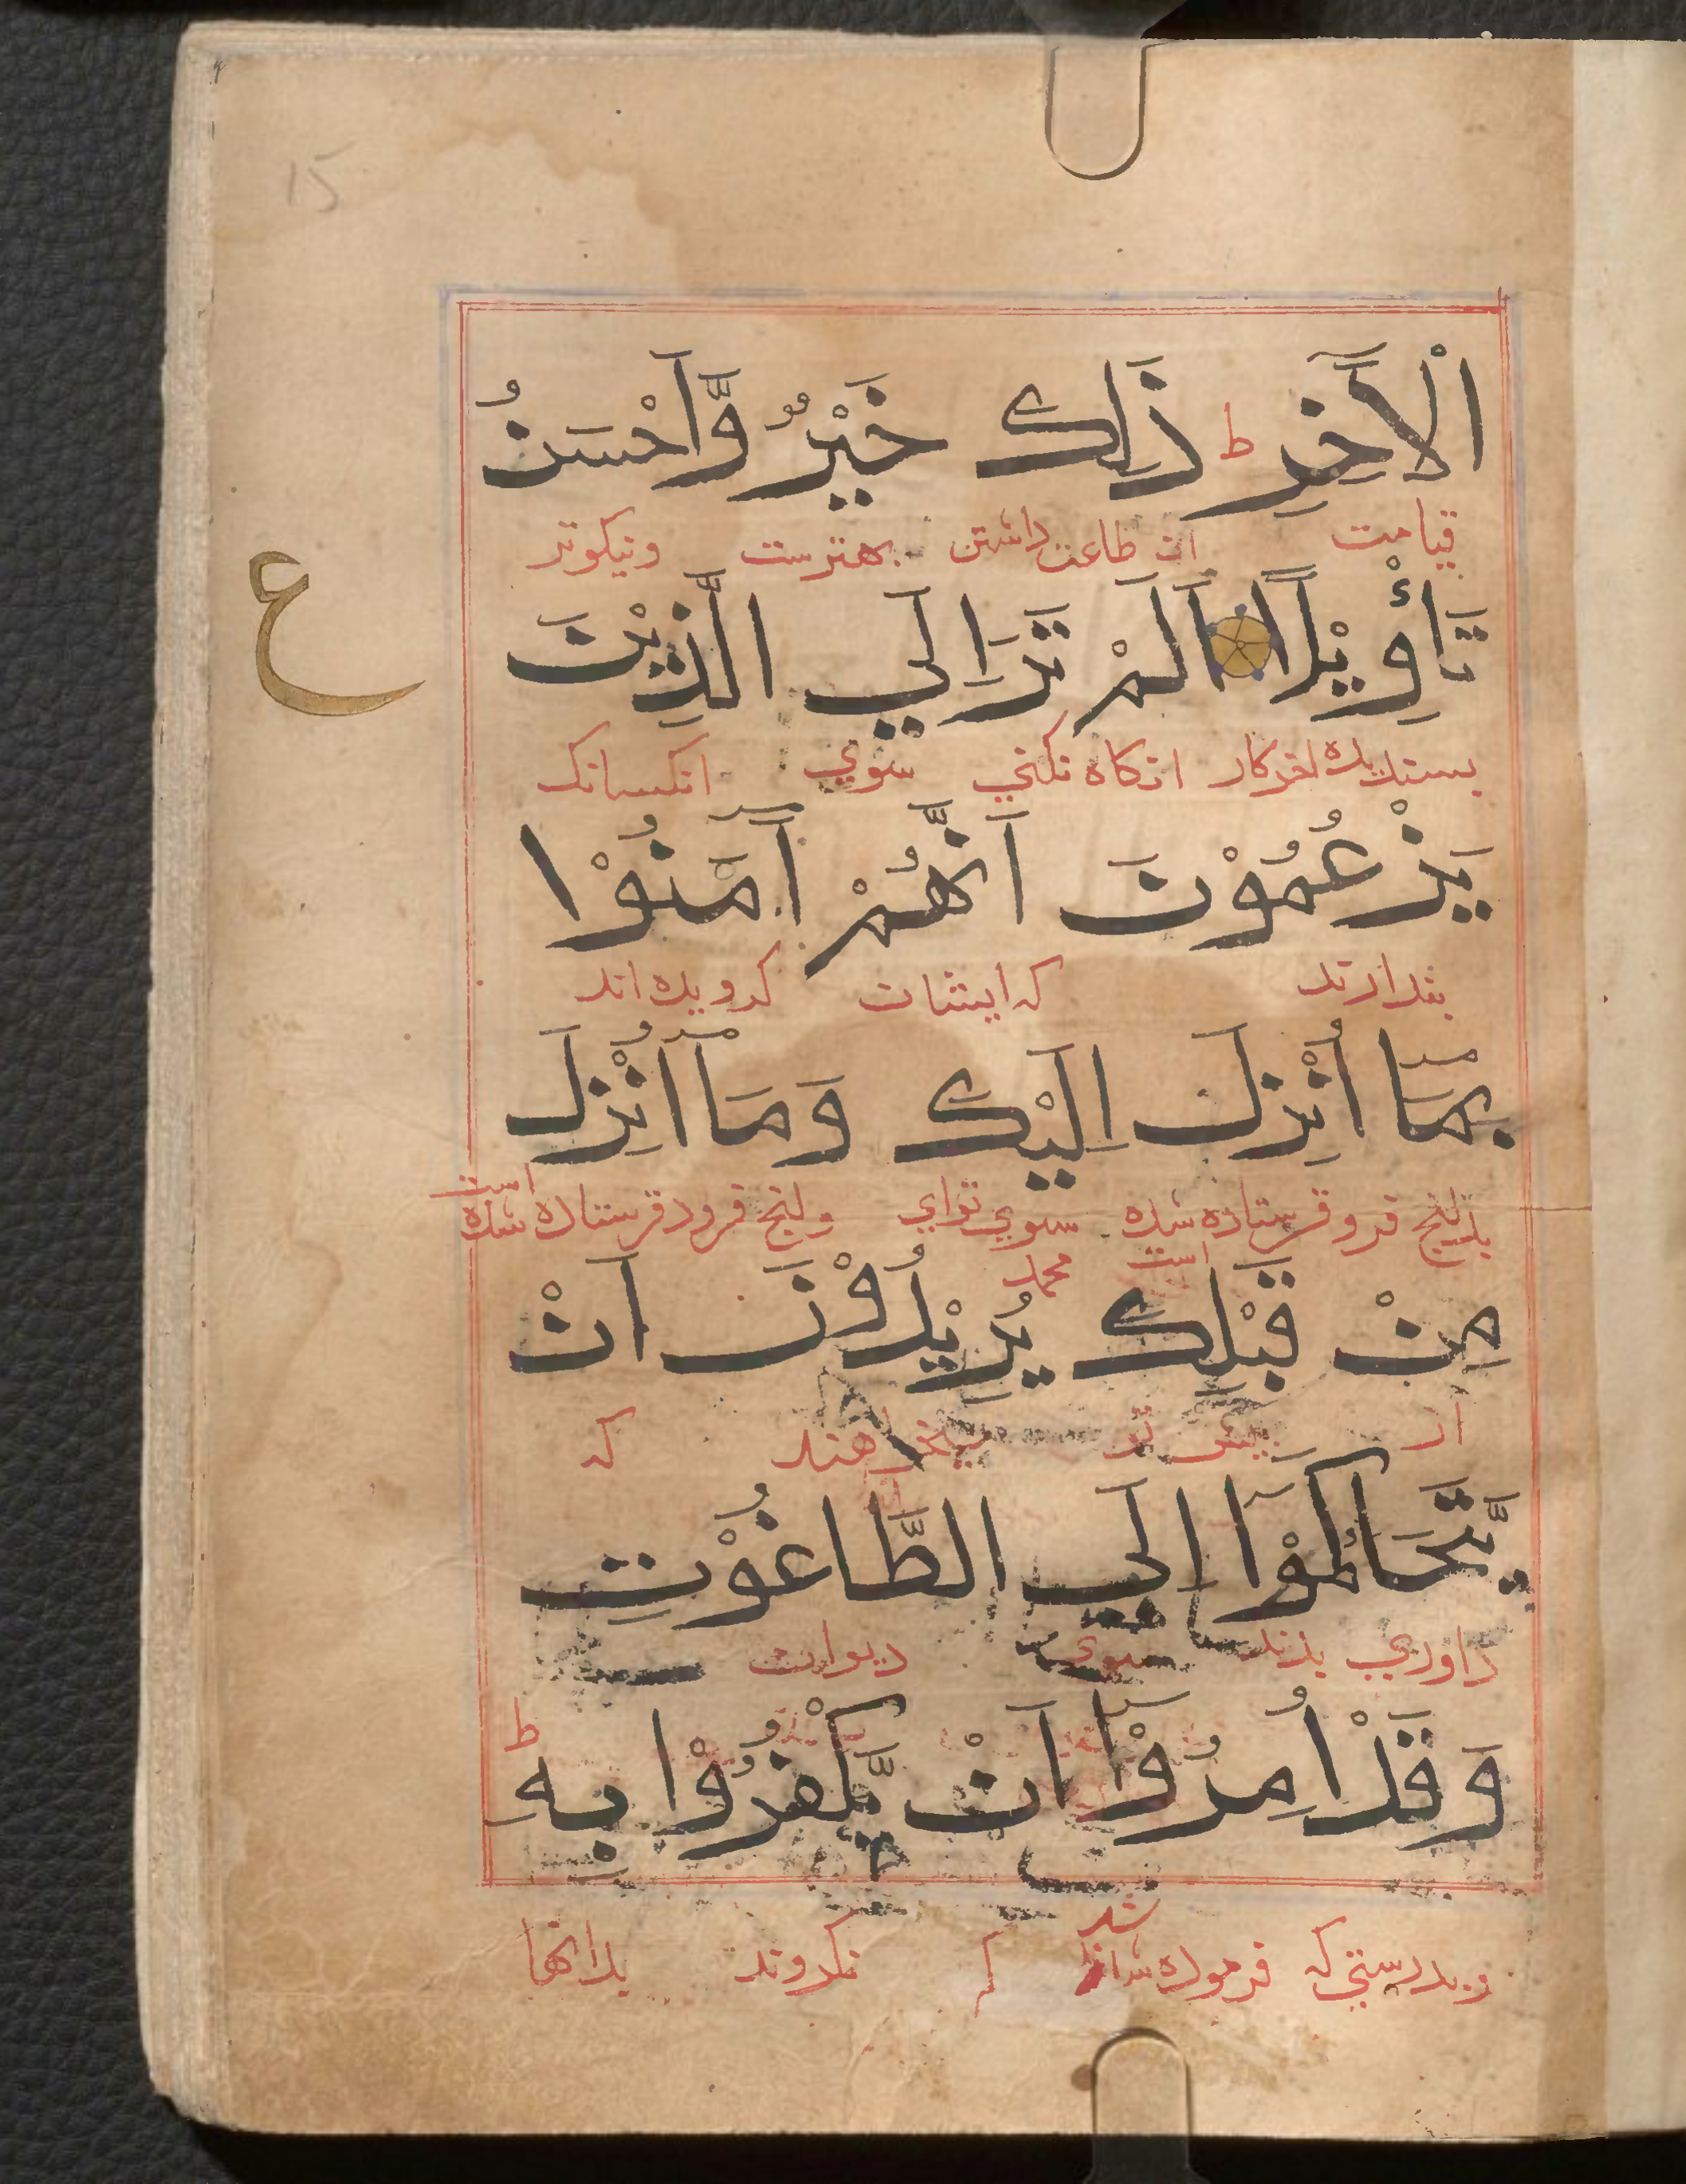 15
الْاٰخِرِ ط ذٰلِكَ خَيْرٌ وَّاَحْسَنُ
قیامت ان طاعت داشتن بهترست ونیکوتر
تَاْوِيْلًا اَلَمْ تَرَ اِلَي الَّذِيْنَ
ع
بسندیده اخرکار انکاه نکنی سوي انکسانک
يَزْعُمُوْنَ اَنَّهُمْ اٰمَنُوْا
بندارند که ایشان کرویده اند
بِمَآ اُنْزِلَ اِلَيْكَ وَمَآ اُنْزِلَ
بدانج فروفرستاده شده است سوي تواي محمد وانج فرودفرستاده شده است
مِنْ قَبْلِكَ يُرِيْدُوْنَ اَنْ
از بیش تو میخواهند که
يَّتَحَاكَمُوْٓا اِلَي الطَّاغُوْتِ
داوري برند سوي دیوان
وَقَدْ اُمِرُوْٓا اَنْ يَّكْفُرُوْا بِهٖ ط
وبدرستی که فرموده شد که نکروند بدانها